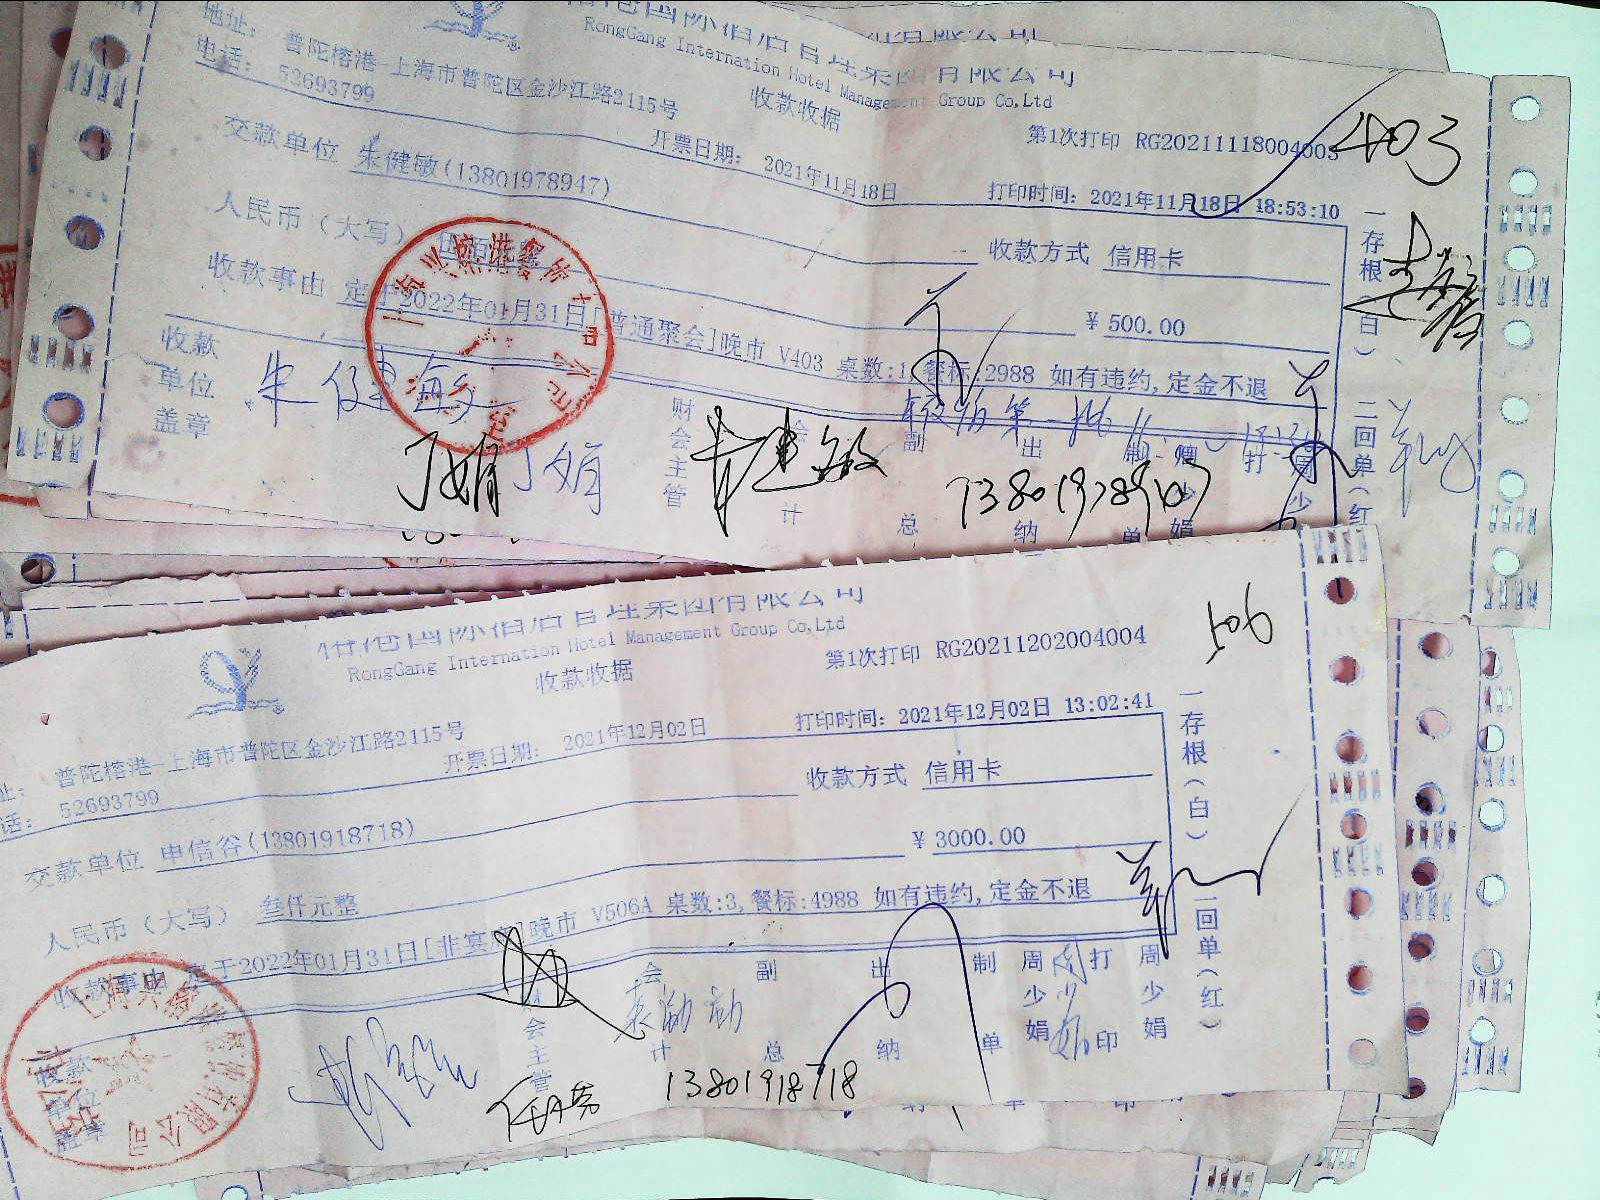 地址： 普陀榕港-上海市普陀区金沙江路2115号
电话： 52693799
榕港国际酒店管理集团有限公司
RongGang International Hotel Management Group Co,Ltd
收款收据
第1次打印 RG20211118004003
403
开票日期： 2021年11月18日
打印时间：2021年11月18日 18:53:10
交款单位 朱健敏(13801978947)
人民币（大写） 伍佰元整
收款方式 信用卡
收款事由 定于2022年01月31日[普通聚会]晚市 V403 桌数:1,餐标:2988 如有违约,定金不退
￥500.00
收款单位盖章
朱健敏
丁娟 丁娟
财会主管
会计
副总
出纳
制单
周少娟
打
13801978947
一存根（白）
二回单（红
榕港国际酒店管理集团有限公司
RongGang International Hotel Management Group Co,Ltd
收款收据
第1次打印 RG20211202004004
506
址： 普陀榕港-上海市普陀区金沙江路2115号
话： 52693799
开票日期： 2021年12月02日
打印时间：2021年12月02日 13:02:41
交款单位 申信谷(13801918718)
收款方式 信用卡
人民币（大写） 叁仟元整
￥3000.00
收款事由 定于2022年01月31日[非宴席]晚市 V506A 桌数:3,餐标:4988 如有违约,定金不退
收款单位盖章
会主管
会计
副总
出纳
制单
周少娟
打印
周少娟
13801918718
一存根（白）
二回单（红）